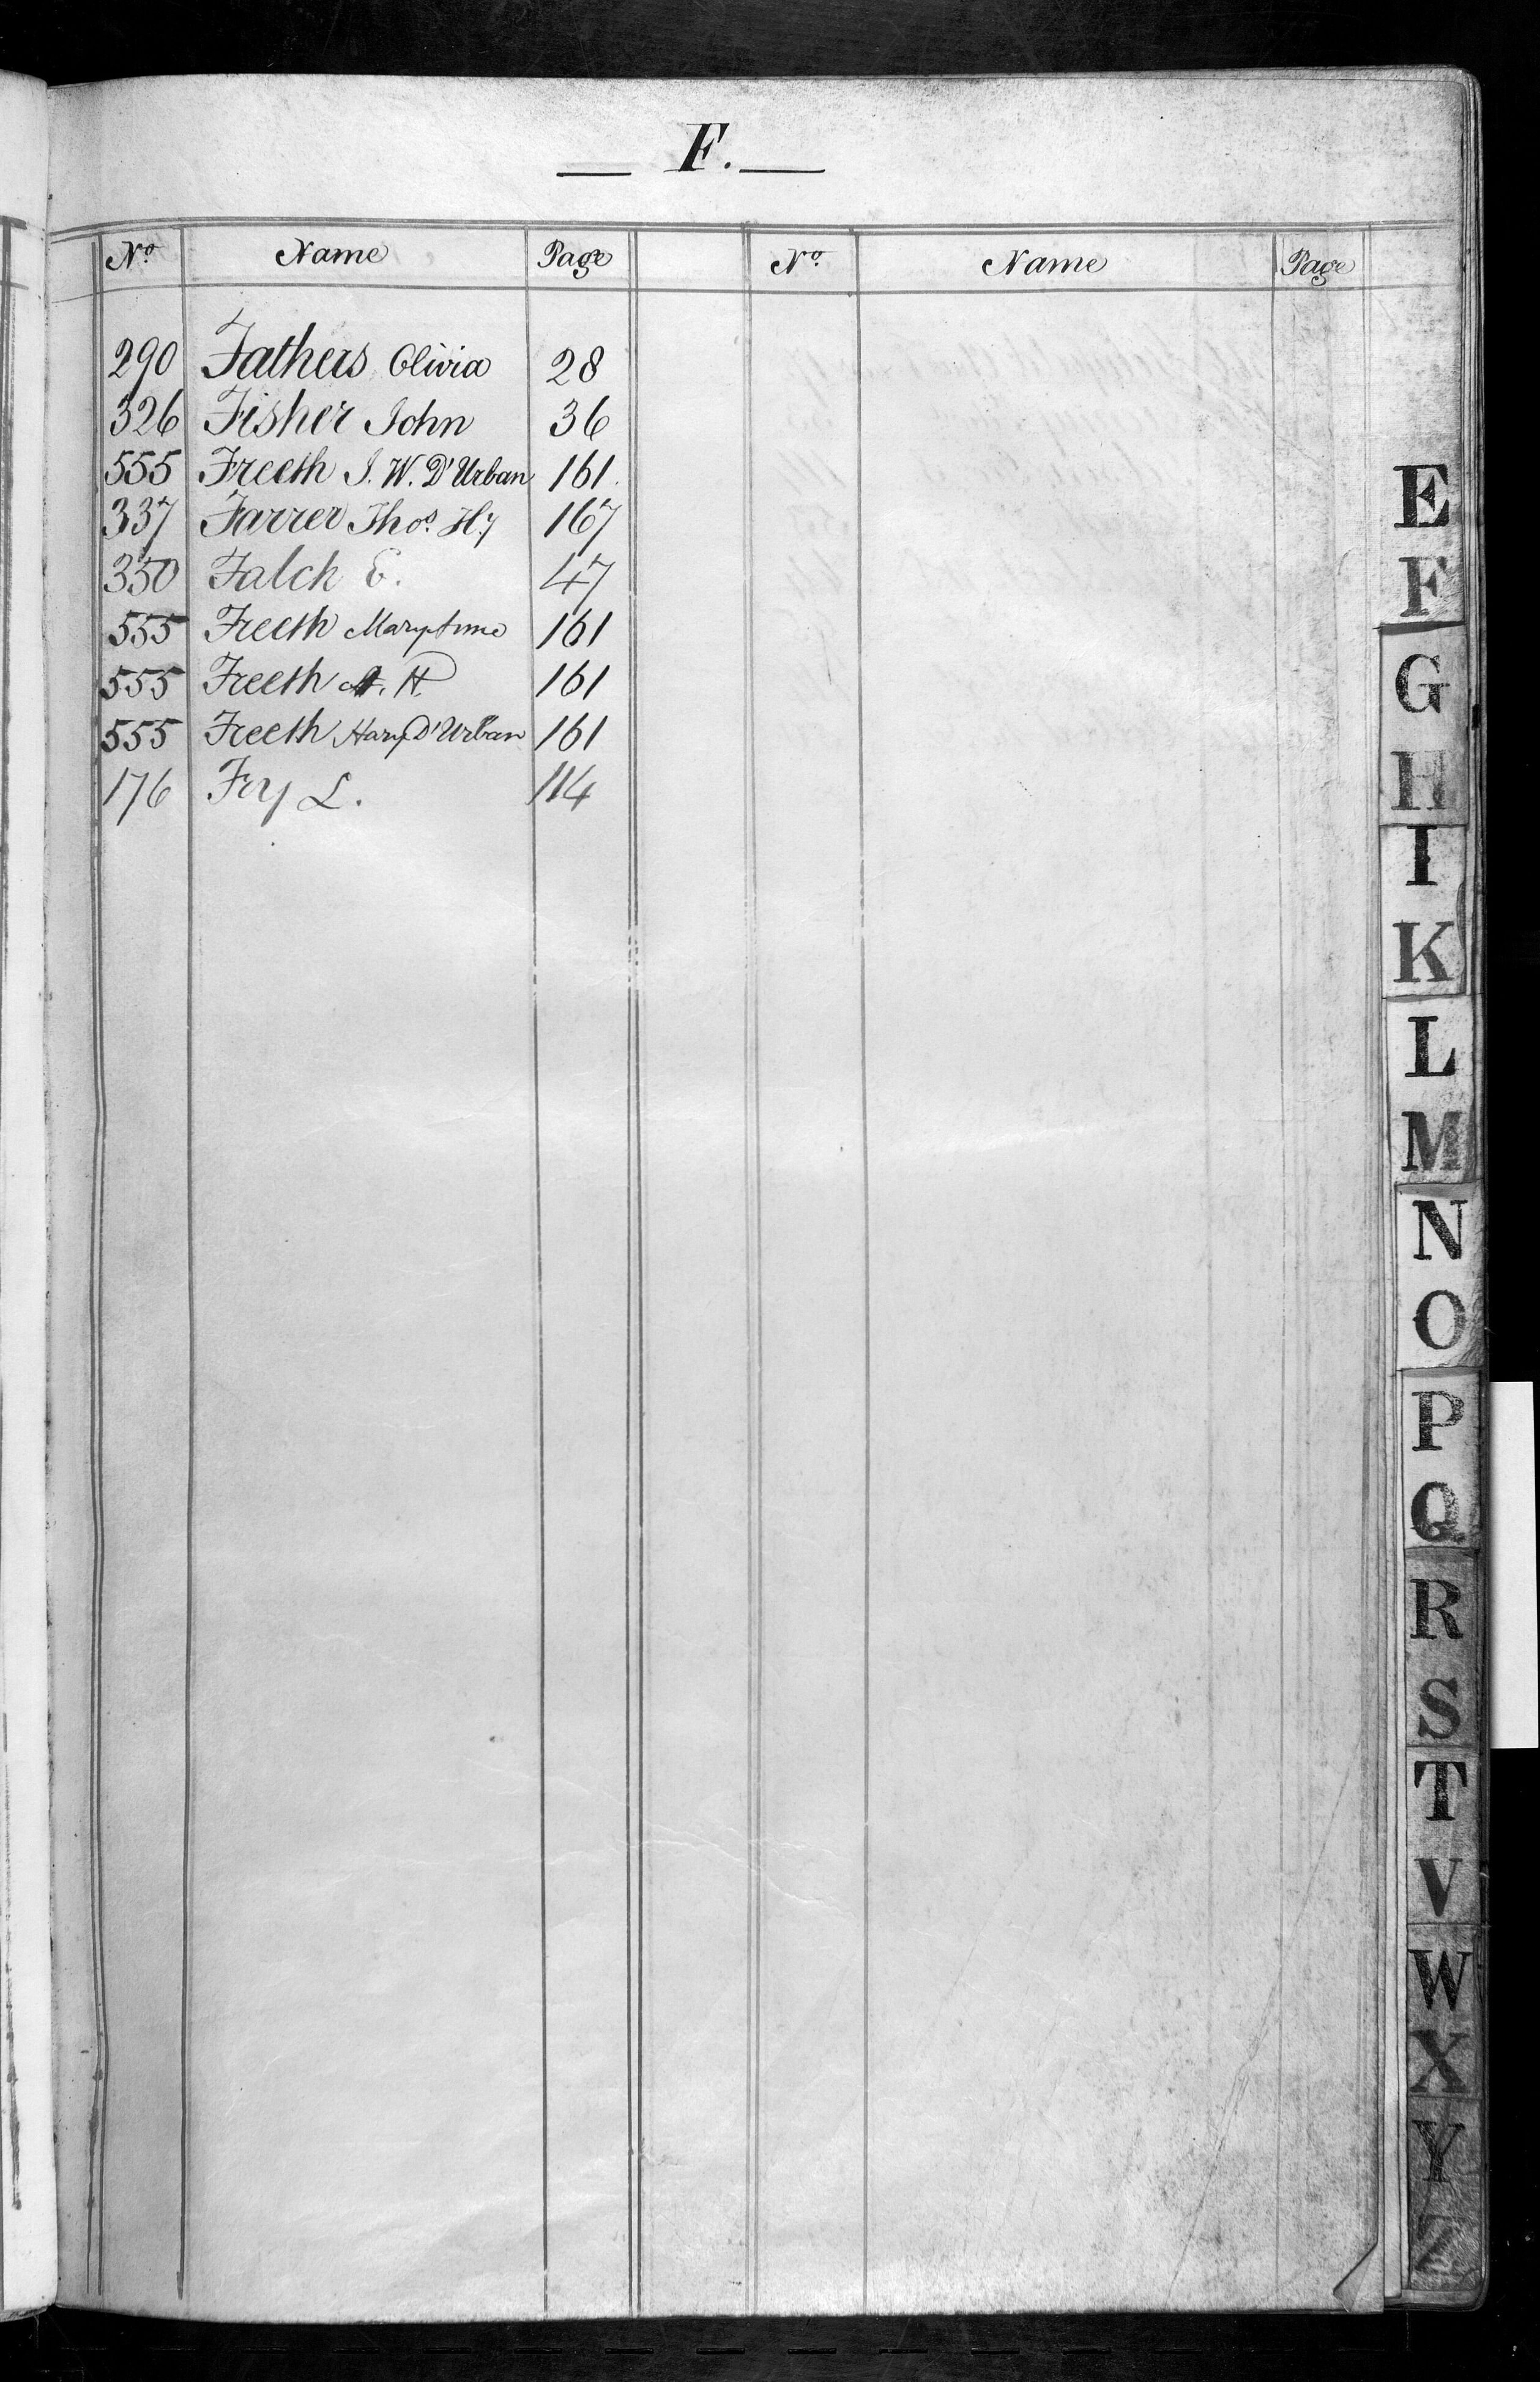 F.
No. Name Page No. Name Page
290 Fathers Olivia 28
326 Fisher John 36
555 Freeth J. W. D'Urban 161.
337 Farrer Thos. Hy 167
350 Falch E. 47
555 Freeth Mary Anne 161
555 Freeth H. 161
555 Freeth Hary D'Urban 161
176 Fry L. 114
E
F
G
H
I
K
L
M
N
O
P
Q
R
S
T
V
W
X
Y
Z